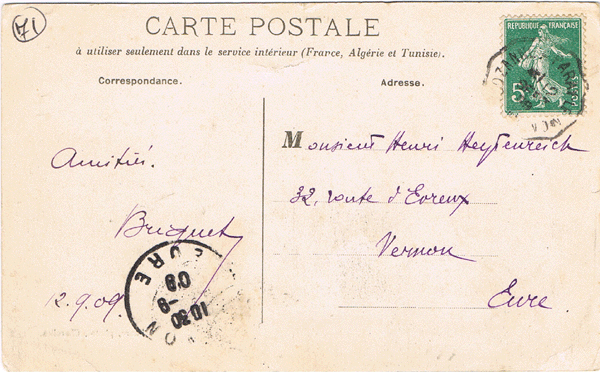 71
CARTE POSTALE
à utiliser seulement dans le service intérieur (France, Algérie et Tunisie).
Correspondance.
Adresse.
REPUBLIQUE FRANÇAISE
5c
POSTES
Amitiés.
Bricquet
12.9.09.
Monsieur Henri Heytenreich
32, route d'Evreux
Vernon
Eure.
ON
EURE
1030
9-
09